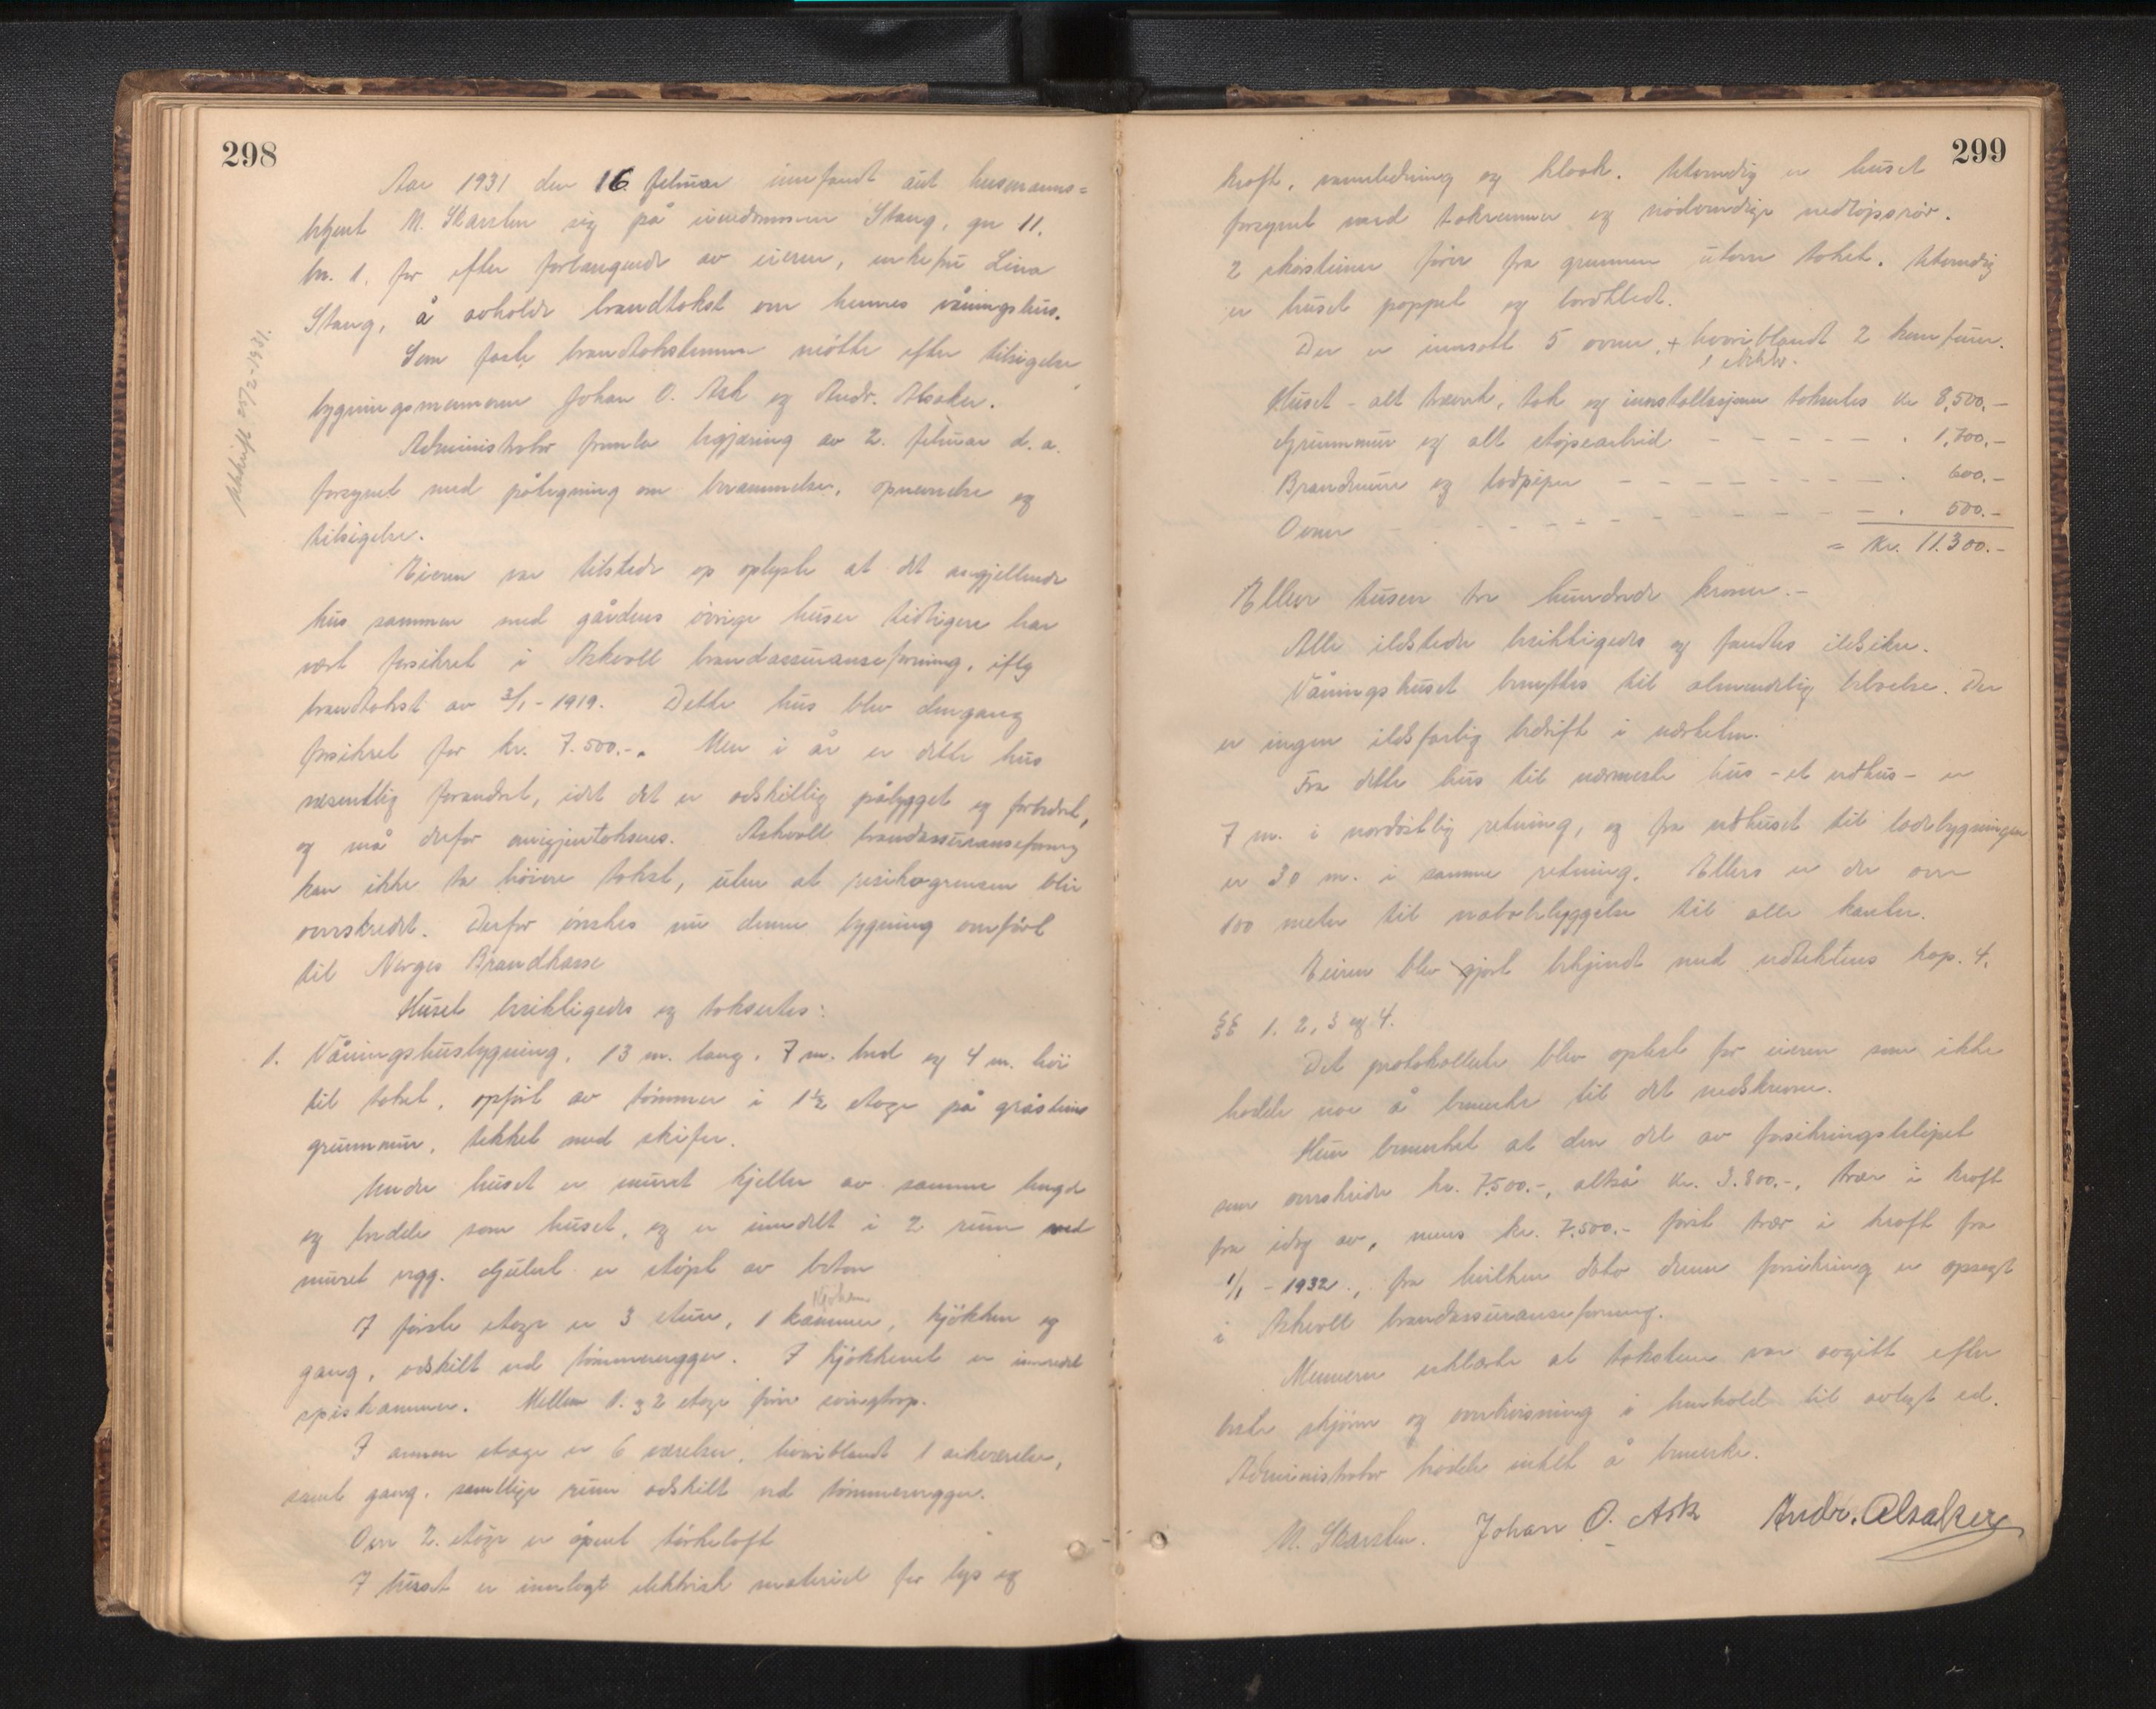 298
Aar 1931 den 16 februar innfandt aut. husmanns=
betjent M. Skarsten sig på eiendommen Stang, gnr 11.
br. 1. for efter forlangende av eieren, enkefru Lina
Stang, å avholde brandtakst om hennes våningshus.
Som faste brandtakstmenn møtte efter tilsigelse
bygningsmennene Johan O. Ask og Andr. Alsaker.
Administrator fremla begjæring av 2. februar d.a.
forsynet med påtegning om berammelse, opnevnelse og
tilsigelse.
Eieren var tilstede op oplyste at det angjellende
hus sammen med gårdens øvrige huser tidligere har
vært forsikret i Askvoll brandassuranseforening, iflg
brandtakst av 3/1 - 1919. Dette hus blev dengang
forsikret for kr. 7.500.-. Men i år er dette hus
vesentlig forandret, idet det er adskillig påbygget og forbedret,
og må derfor omigjentakseres. Askvoll brandassuranseforening
kan ikke ta høiere takst, uten at risikogrensen blir
overskredet. Derfor ønskes nu denne bygning overført
til Norges Brandkasse
Huset besiktigedes og taksertes:
1. Våningshusbygning, 13 m. lang, 7 m. bred og 4 m. høi
til taket, opført av tømmer i 1½ etage på gråsteins
grunnmur, tekket med skifer.
Under huset er muret kjeller av samme lengde
og bredde som huset, og er inndelt i 2 rum ved
muret vegg. Gulvet er støpt av beton
I første etage er 3 stuer, 1 kammer, kjøkken og
gang, adskilt ved tømmervegger. I kjøkkenet er innredet
spiskammer. Mellem 1. og 2 etage fører svingtrap.
I annen etage er 6 værelser, hvoriblandt 1 arkværelse,
samt gang, samtlige rum adskilt ved tømmervegger.
Over 2. etage er åpent tørkeloft
I huset er innlagt elektrisk materiel for lys og
Utskrift 25/2-1931.
299
kraft, vannledning og kloak. Utvendig er huset
forsynet med takrenner og nødvendige nedløpsrør.
2 skorsteiner fører fra grunnen utover taket. Utvendig
er huset pappet og bordkledt.
Der er innsatt 5 ovner, + hvoriblandt 2 komfurer.
1 elektr.
Huset - alt treverk, tak og innstallasjoner takseres kr 8,500.-
Grunnmur og alt støpearbeid - - - - - . 1,700.-
Brandmure og lodpiper - - - - - - - . 600.-
Ovner - - - - - - - - - - . 500.-
= Kr. 11.300.-
Elleve tusen tre hundrede kroner.-
Alle ildsteder besiktigedes og fandtes ildsikre.
Våningshuset benyttes til almindelig beboelse. Der
er ingen ildsfarlig bedrift i nærheten.
Fra dette hus til nærmeste hus - et udhus - er
7 m. i nordøstlig retning, og fra udhuset til ladebygningen
er 30 m. i samme retning. Ellers er der over
100 meter til nabobebyggelse til alle kanter.
Eieren blev gjort bekjendt med vedtektens kap. 4.
§§ 1. 2, 3 og 4.
Det protokollerte blev oplest for eieren som ikke
hadde noe å bemerke til det nedskrevne.
Hun bemerket at den del av forsikringsbeløpet
som overskrider kr. 7,500.-, altså kr. 3.800.-, trær i kraft
fra idag av, mens kr. 7.500.- først trær i kraft fra
1/1 - 1932., fra hvilken dato denne forsikring er opsagt
i Askvoll brandassuranseforening.
Mennene erklærte at taksten var avgitt efter
beste skjønn og overbevisning i henhold til avlagt ed.
Administrator hadde intet å bemerke.
M. Skarsten. Johan O. Ask Andr. Alsaker